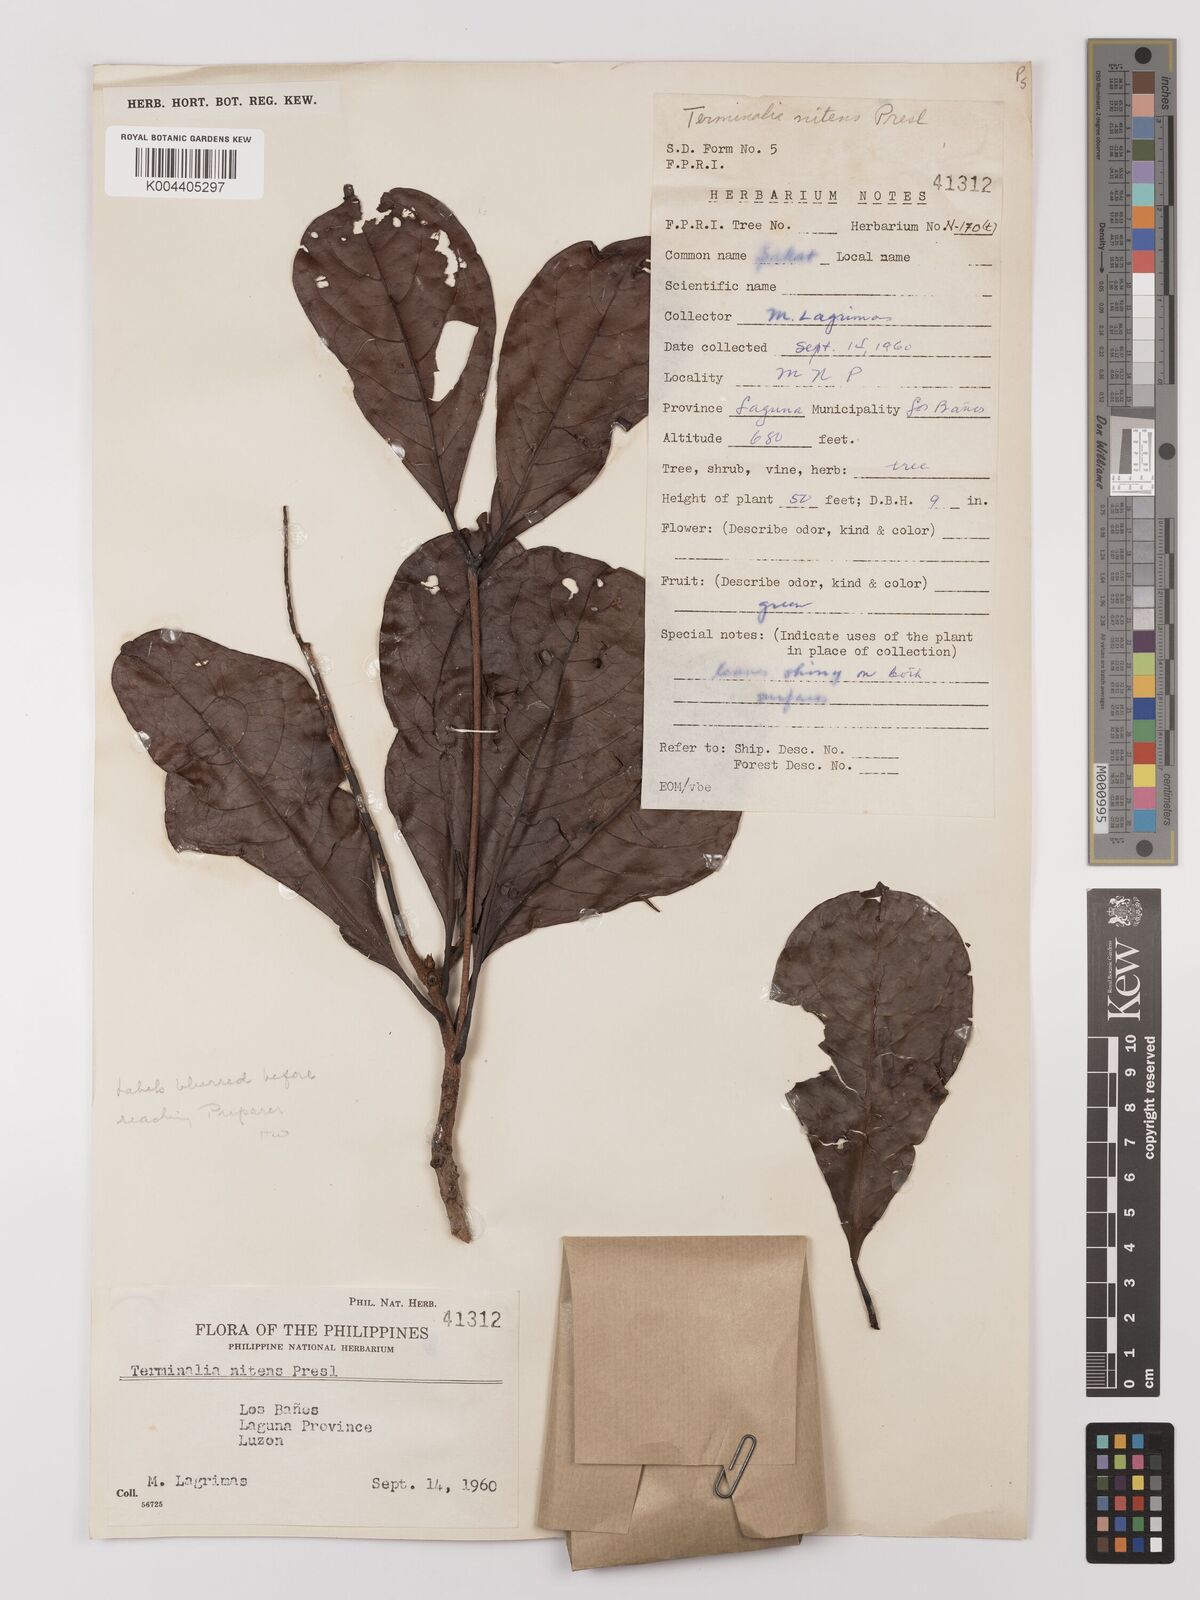 HERB. HORT. BOT. REG. KEW.
ROYAL BOTANIC GARDENS KEW
K004405297
Terminalia nitens Presl
S.D. Form No. 5
F.P.R.I.
41312
HERBARIUM NOTES
F.P.R.I. Tree No. Herbarium No. N-170(t)
Common name Sakat Local name
Scientific name
Collector M. Lagrimas
Date collected Sept. 14, 1960
Locality M N P
Province Laguna Municipality Los Baños
Altitude 680 feet.
Tree, shrub, vine, herb: tree
Height of plant 50 feet; D.B.H. 9 in.
Flower: (Describe odor, kind & color)
Fruit: (Describe odor, kind & color)
green
Special notes: (Indicate uses of the plant
in place of collection)
leaves shiny on both
surfaces
Refer to: Ship. Desc. No.
Forest Desc. No.
EOM/vbe
Labels blurred before
reaching Preparer
HW
PHIL. NAT. HERB. 41312
FLORA OF THE PHILIPPINES
PHILIPPINE NATIONAL HERBARIUM
Terminalia nitens Presl
Los Baños
Laguna Province
Luzon
Coll. M. Lagrimas Sept. 14, 1960
56725
inches
centimetres
Density
Don Williams
M000995
Kew
Royal Botanic Gardens
0 1 2 3 4 5 6 7 8 9 10
cm
copyright reserved